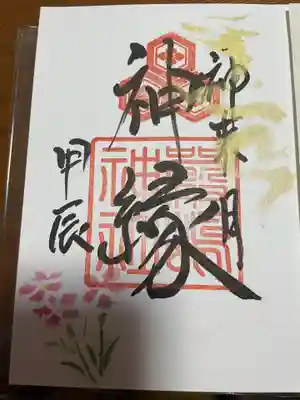 神在月
神縁
甲辰
神社